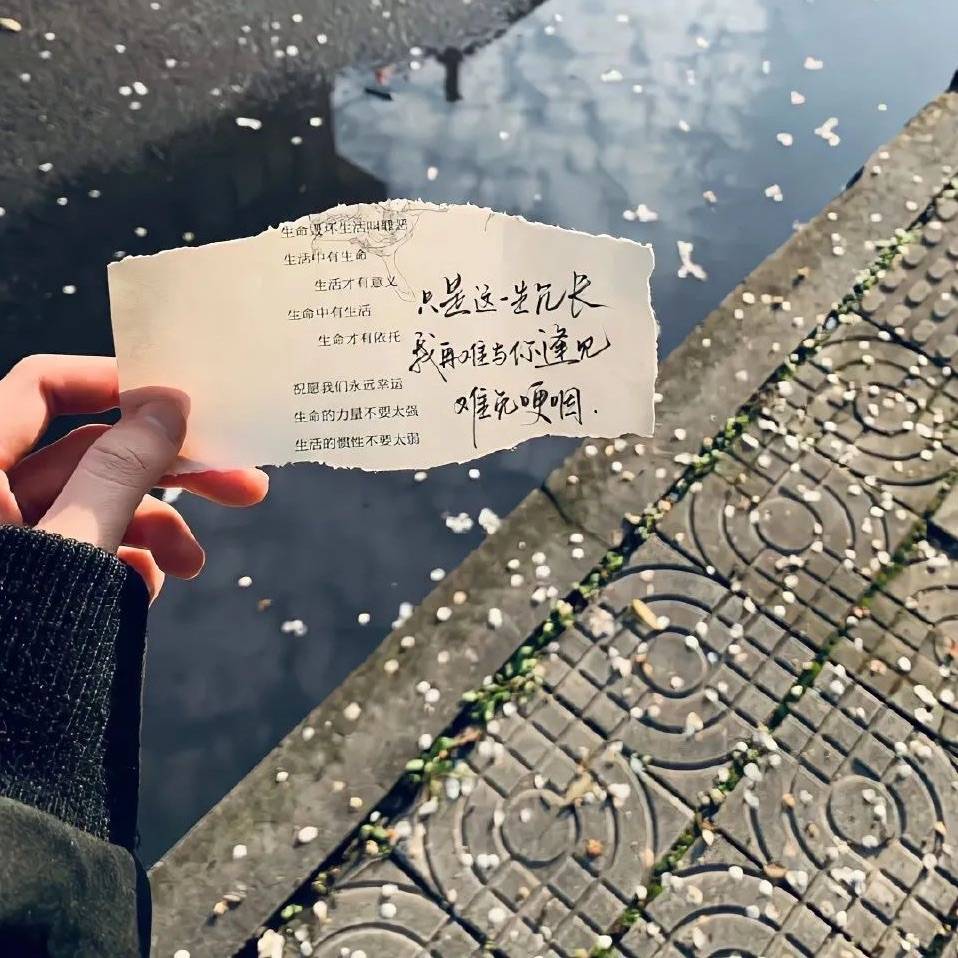 生命毁坏生活叫聪慧
生活中有生命
生活才有意义
生命中有生活
生命才有依托
祝愿我们永远幸运
生命的力量不要太强
生活的惯性不要太弱
只是这一生冗长
我再难与你逢见
难免哽咽.